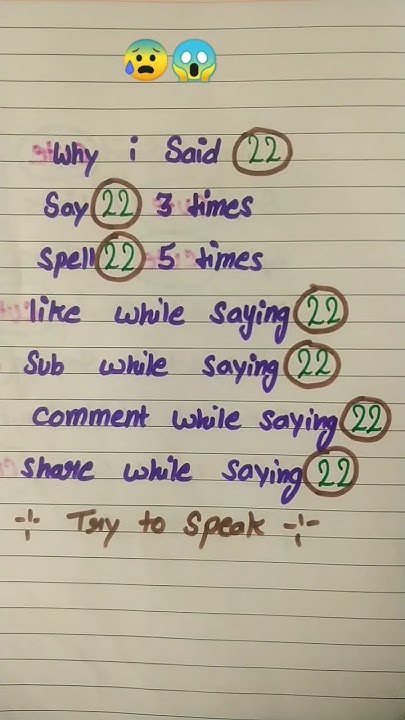 😰😱
Why i Said 22
Say 22 3 times
Spell 22 5 times
like while saying 22
Sub while saying 22
comment while saying 22
share while saying 22
Try to Speak